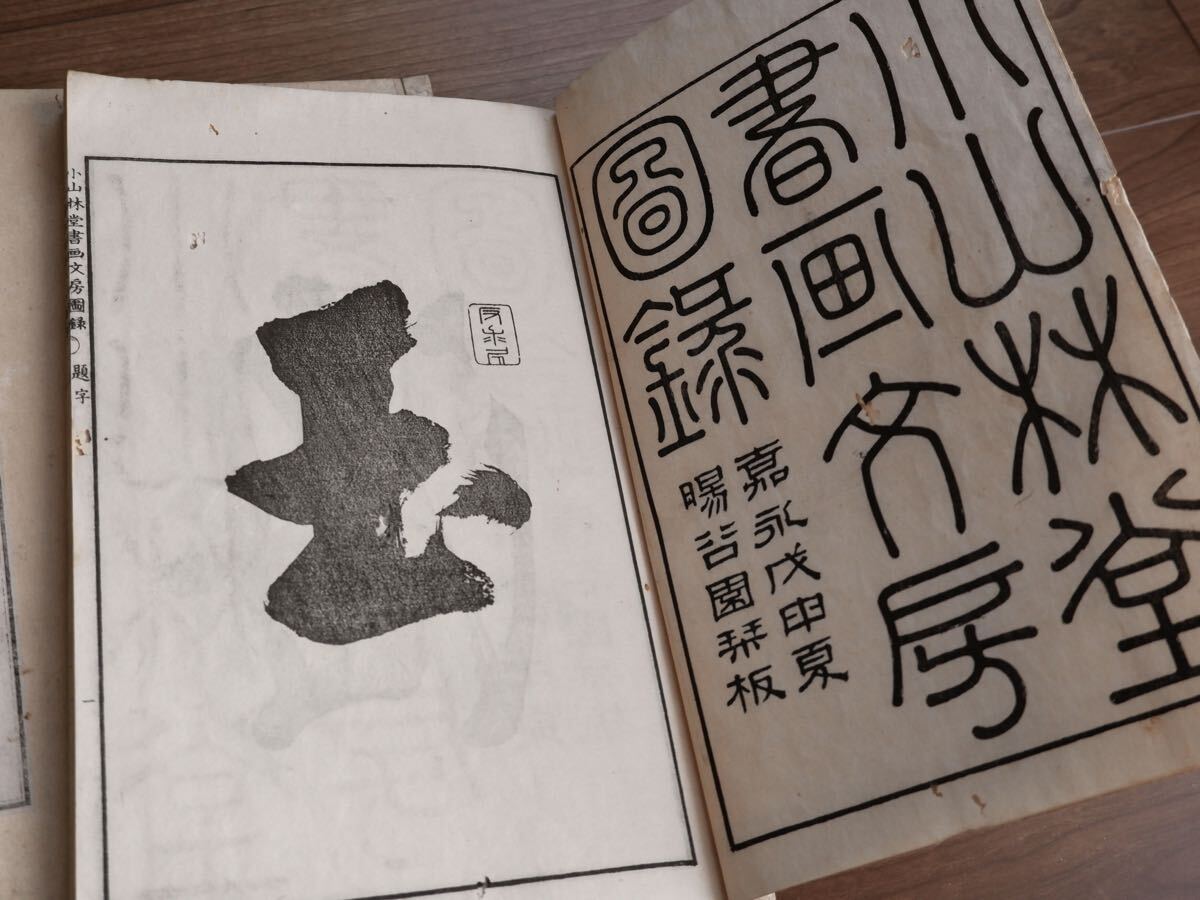 小山林堂
書画文房
圖錄
嘉永戊申夏
暘谷園栞板
小山林堂書画文房圖録 題字
一